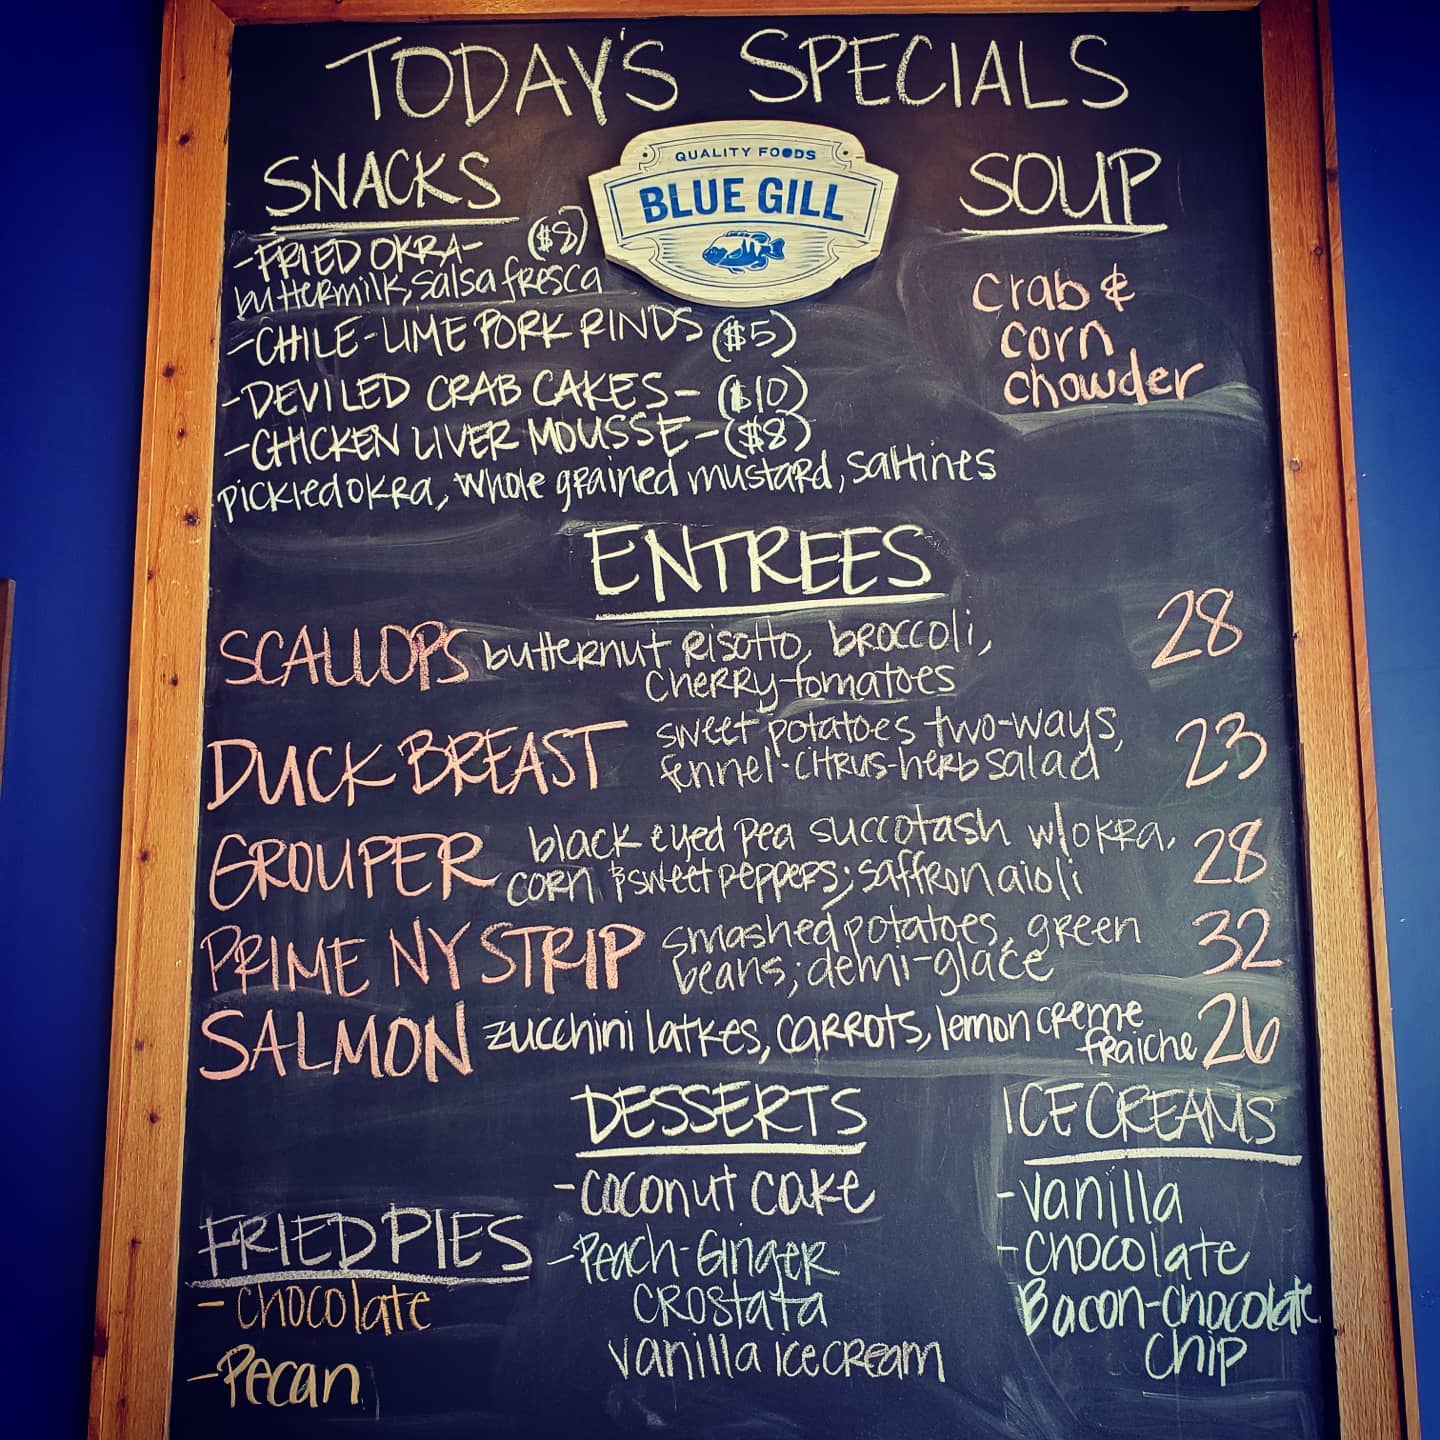 TODAY'S SPECIALS
QUALITY FOODS
BLUE GILL
SNACKS
-FRIED OKRA- ($8)
buttermilk, salsa fresca
-CHILE-LIME PORK RINDS ($5)
-DEVILED CRAB CAKES- ($10)
-CHICKEN LIVER MOUSSE-($8)
pickled okra, whole grained mustard, saltines
SOUP
crab &
corn
chowder
ENTREES
SCALLOPS butternut risotto, broccoli, 28
cherry tomatoes
DUCK BREAST sweet potatoes two-ways, 23
fennel-citrus-herb salad
GROUPER black eyed pea succotash w/okra, 28
corn & sweet peppers; saffron aioli
PRIME NY STRIP smashed potatoes, green 32
beans; demi-glace
SALMON zucchini latkes, carrots, lemon creme 26
fraiche
FRIED PIES
-chocolate
-Pecan
DESSERTS
-coconut cake
-Peach-Ginger
crostata
vanilla ice cream
ICE CREAMS
-vanilla
-chocolate
Bacon-chocolate
chip